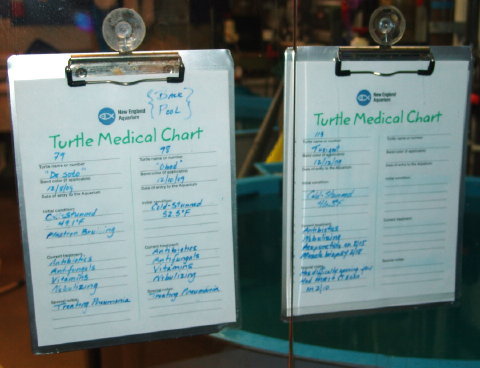 {"Dace"
Pool}
New England
Aquarium
Turtle Medical Chart
79
Turtle name or number
"De Soto"
Band color (if applicable)
12/5/09
Date of entry to the Aquarium
Initial condition:
Cold-Stunned
49.1°F
Plastron
Current treatment:
Antibiotics
Antifungals
Vitamins
Nebulizing
Special notes:
Treating Pneumonia
98
Turtle name or number
Band color (if applicable)
12/10/09
Date of entry to the Aquarium
Initial condition:
Cold-Stunned
52.5°F
Current treatment:
Antibiotics
Antifungals
Vitamins
Nebulizing
Special notes:
Treating Pneumonia
New England
Aquarium
Turtle Medical Chart
113
Turtle name or number
Band color (if applicable)
Date of entry to the Aquarium
Initial condition:
Cold-Stunned
Current treatment:
Antibiotics
Nebulizing
Acupuncture on 2/15
Muscle biopsy
Special notes:
Had
on 2/10
Turtle name or number
Band color (if applicable)
Date of entry to the Aquarium
Initial condition:
Current treatment:
Special notes: